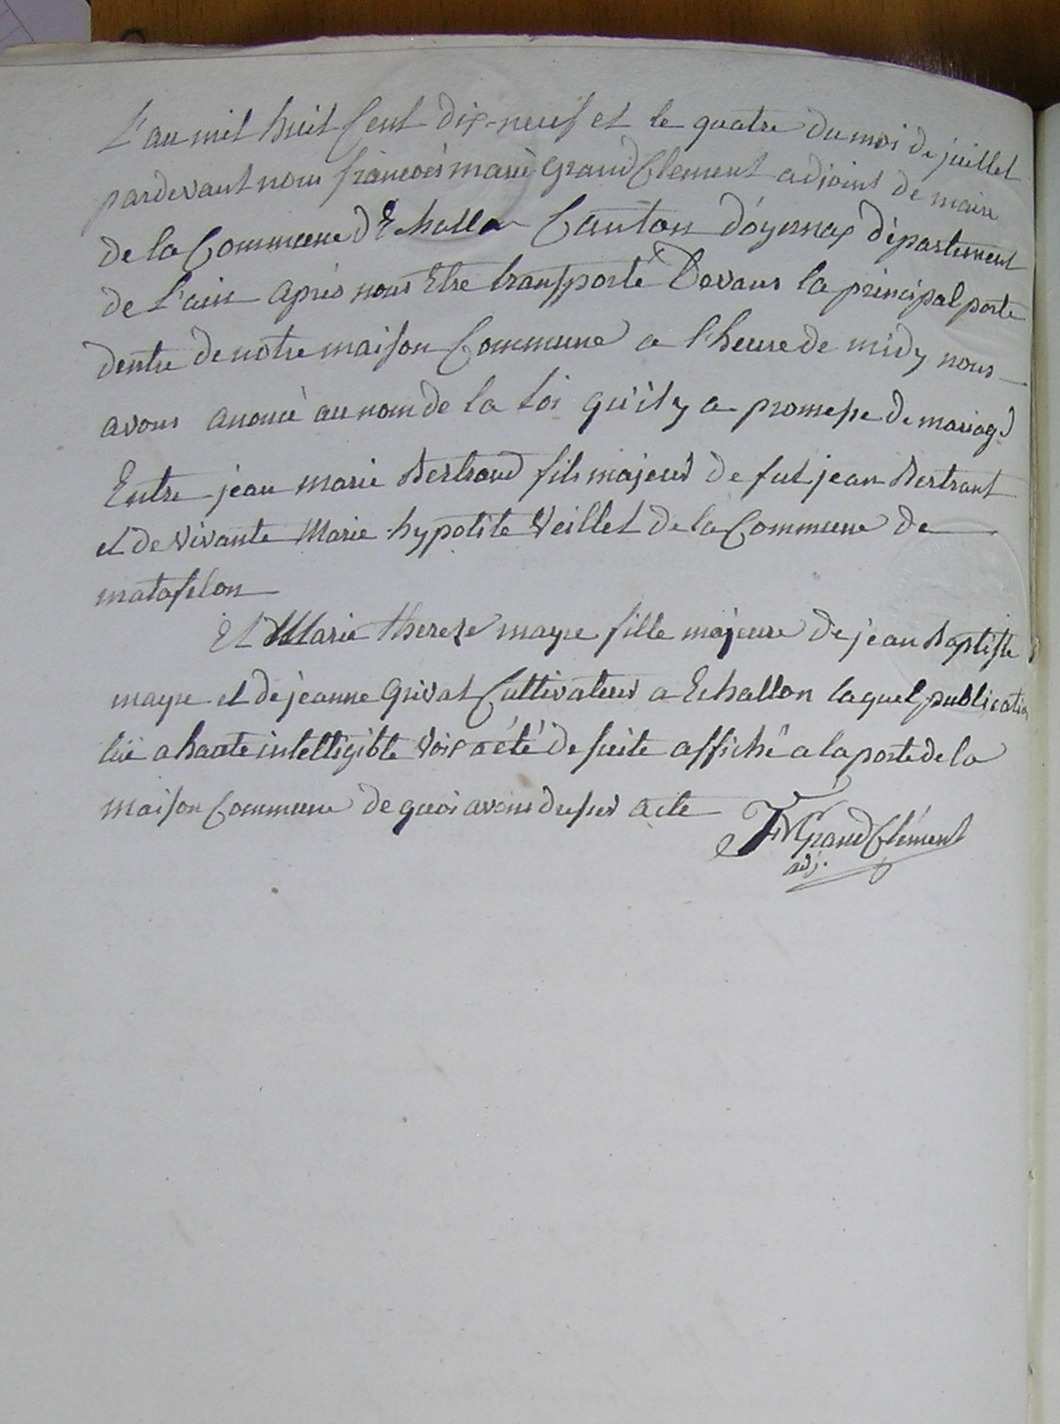 L'an mil huit Cent dix-neuf et le quatre du moi de juillet
pardevant nous francois marie Grand Clement adjoint de maire
de la Commune d'Echallon Canton d'oyonnax département
de L'ain après nous Etre transporté Devant la principal porte
dentre de notre maison Commune a l'heure de midy nous
avons anoncé au nom de la Loi qu'il y a promesse de mariage
Entre jean marie Bertrand fils majeur de fut jean Bertrant
et de vivante Marie hypolite Veillet de la Commune de
matafelon
Et Marie therese mayre fille majeure de jean Baptiste
mayre et de jeanne Grivat Cultivateur a Echallon laquel publication
lüe a haute intelligible voix a été de suite affiché a la porte de la
maison Commune de quoi avons dressé acte
FMGrandClément
adj.